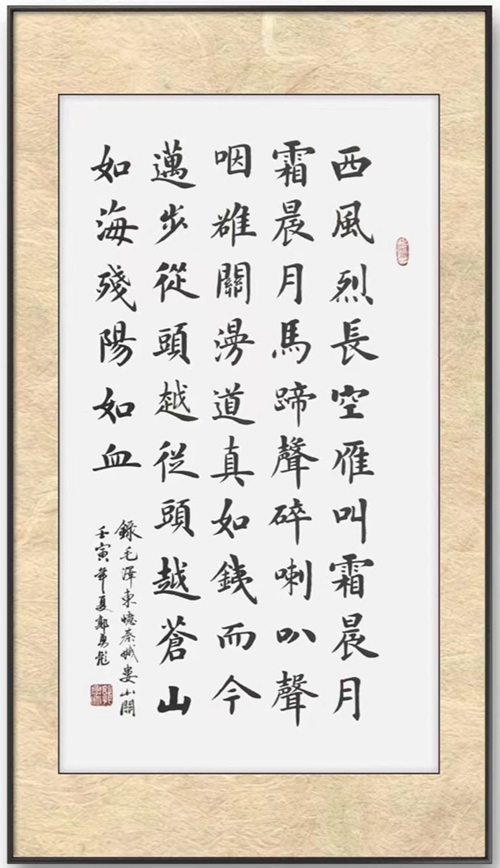 西風烈長空雁叫霜晨月
霜晨月馬蹄聲碎喇叭聲
咽雄關漫道真如銕而今
邁步從頭越従頭越蒼山
如海殘陽如血
錄毛澤東憶秦娥婁山關
壬寅年夏郭彪